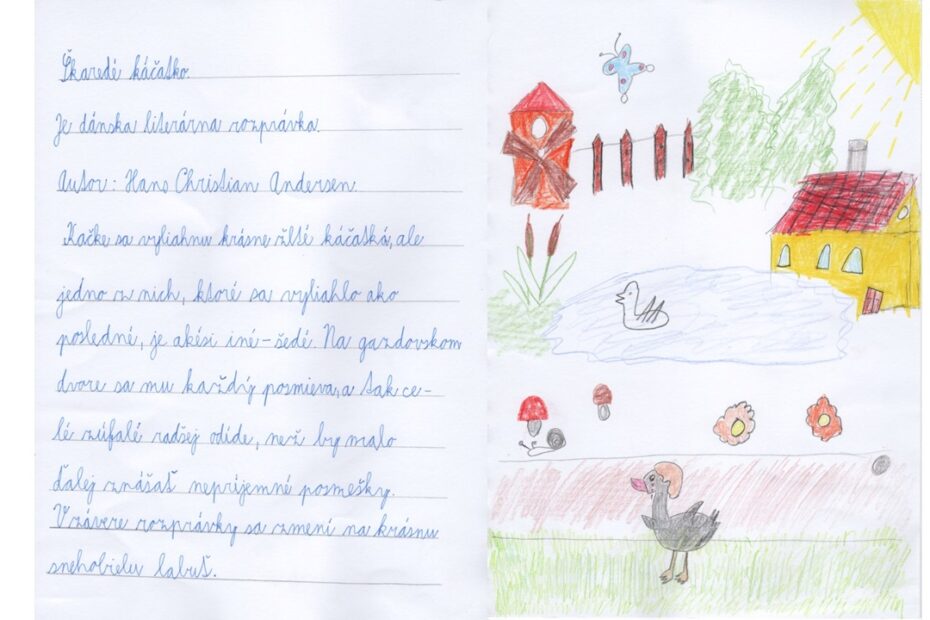 Škaredé káčatko.
Je dánska literárna rozprávka.
Autor: Hans Christian Andersen.
Kačke sa vyliahnu krásne žlté káčatká, ale
jedno z nich, ktoré sa vyliahlo ako
posledné, je akési iné - šedé. Na gazdovskom
dvore sa mu každý posmieva, a tak ce-
lé zúfalé radšej odíde, než by malo
ďalej znášať nepríjemné posmešky.
V závere rozprávky sa zmení na krásnu
snehobielu labuť.